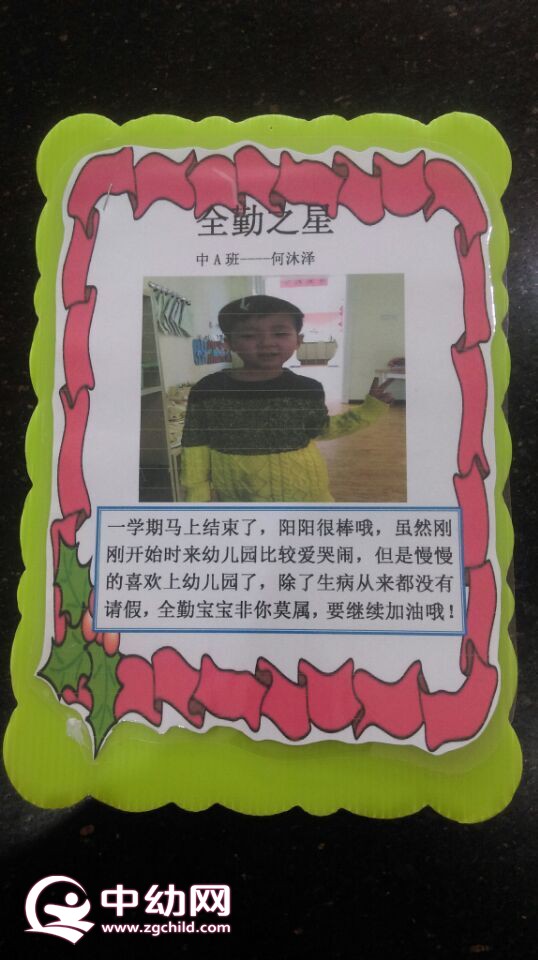 全勤之星
中A班----何沐泽
一学期马上结束了，阳阳很棒哦，虽然刚
刚开始时来幼儿园比较爱哭闹，但是慢慢
的喜欢上幼儿园了，除了生病从来都没有
请假，全勤宝宝非你莫属，要继续加油哦！
中幼网
www.zgchild.com